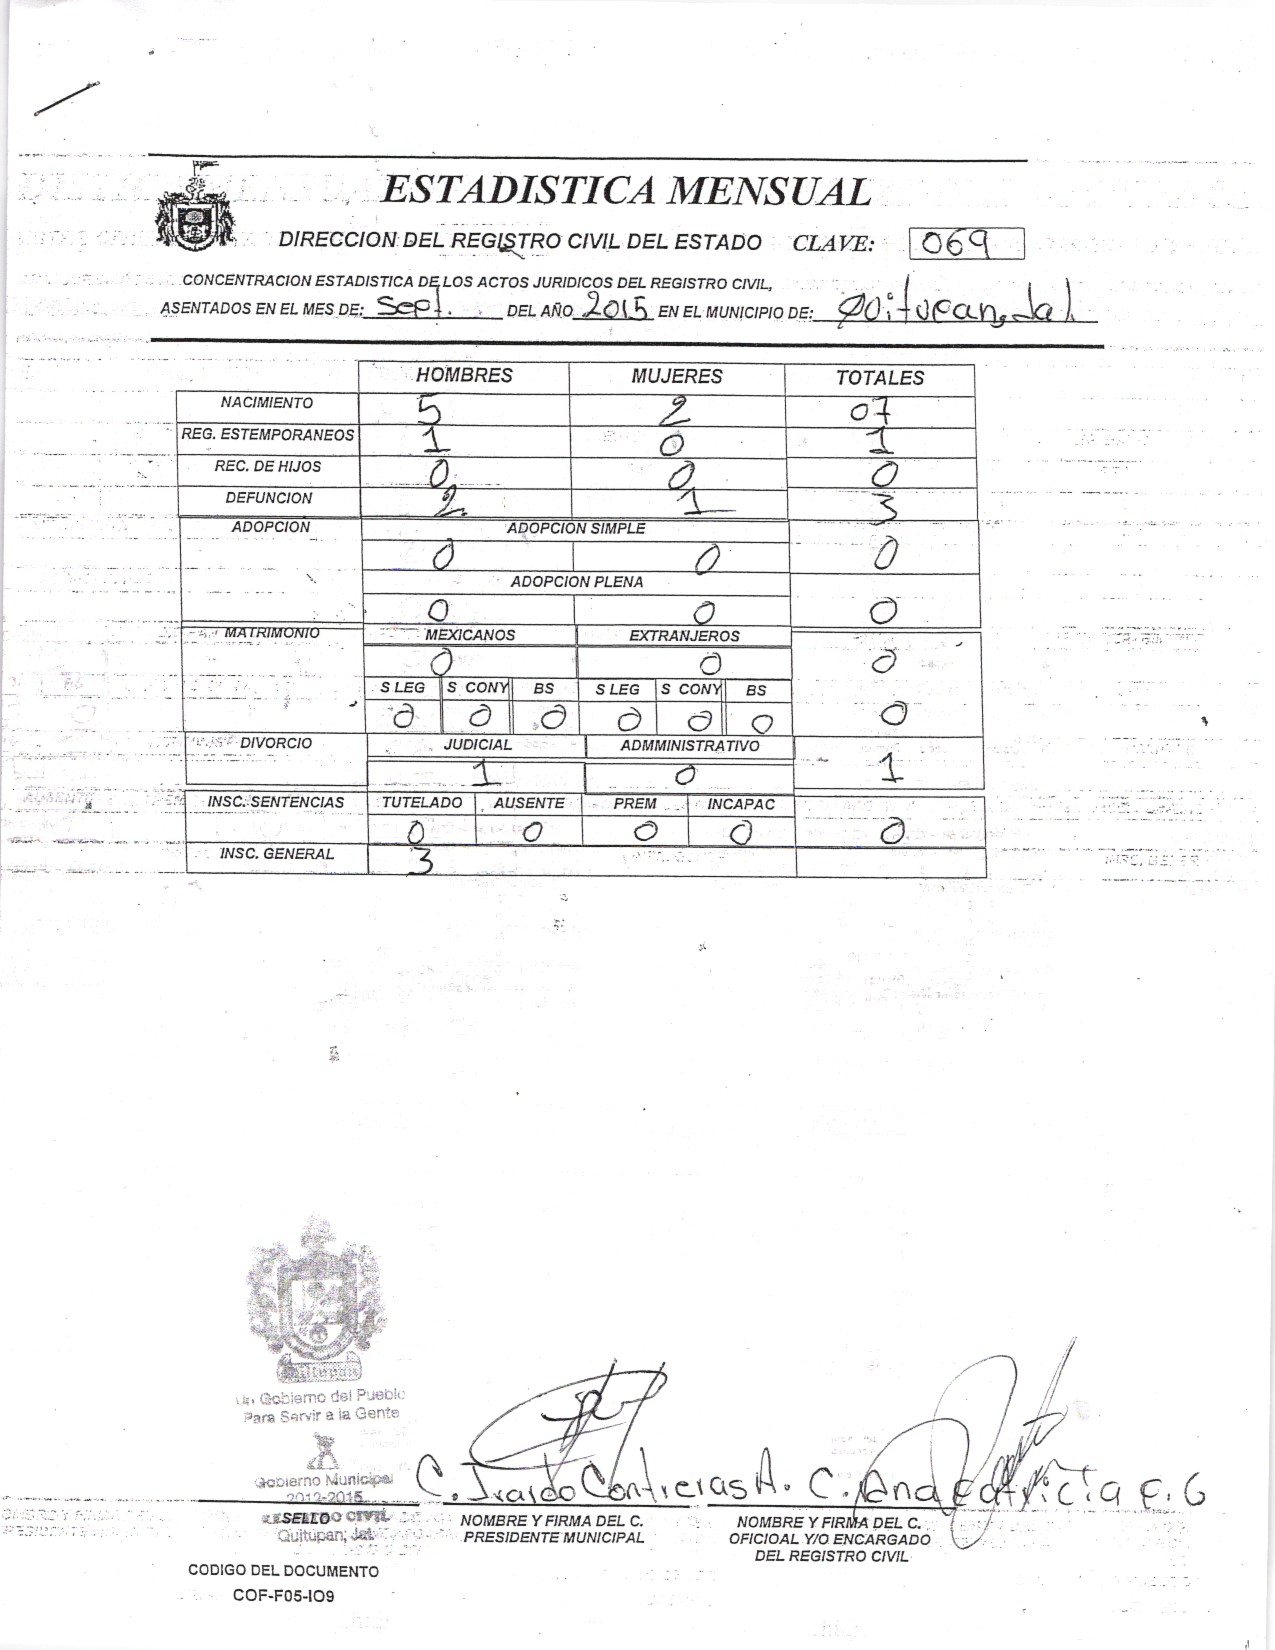 ESTADISTICA MENSUAL
DIRECCION DEL REGISTRO CIVIL DEL ESTADO CLAVE: 069
CONCENTRACION ESTADISTICA DE LOS ACTOS JURIDICOS DEL REGISTRO CIVIL,
ASENTADOS EN EL MES DE: Sept. DEL AÑO 2015 EN EL MUNICIPIO DE: Quitupan, Jal.
HOMBRES MUJERES TOTALES
NACIMIENTO 5 2 07
REG. ESTEMPORANEOS 1 0 1
REC. DE HIJOS 0 0 0
DEFUNCION 2 1 3
ADOPCION ADOPCION SIMPLE
0 0 0
ADOPCION PLENA
0 0 0
MATRIMONIO MEXICANOS EXTRANJEROS
0 0 0
S LEG S CONY BS S LEG S CONY BS
0 0 0 0 0 0 0
DIVORCIO JUDICIAL ADMMINISTRATIVO
1 0 1
INSC. SENTENCIAS TUTELADO AUSENTE PREM INCAPAC
0 0 0 0 0
INSC. GENERAL 3
Quitupan
Un Gobierno del Pueblo
Para Servir a la Gente
Gobierno Municipal
2012-2015
C. Contreras A. C. Ana Patricia F. G
SELLO CIVIL NOMBRE Y FIRMA DEL C. NOMBRE Y FIRMA DEL C.
Quitupan, Jal. PRESIDENTE MUNICIPAL OFICIOAL Y/O ENCARGADO
DEL REGISTRO CIVIL
CODIGO DEL DOCUMENTO
COF-F05-IO9